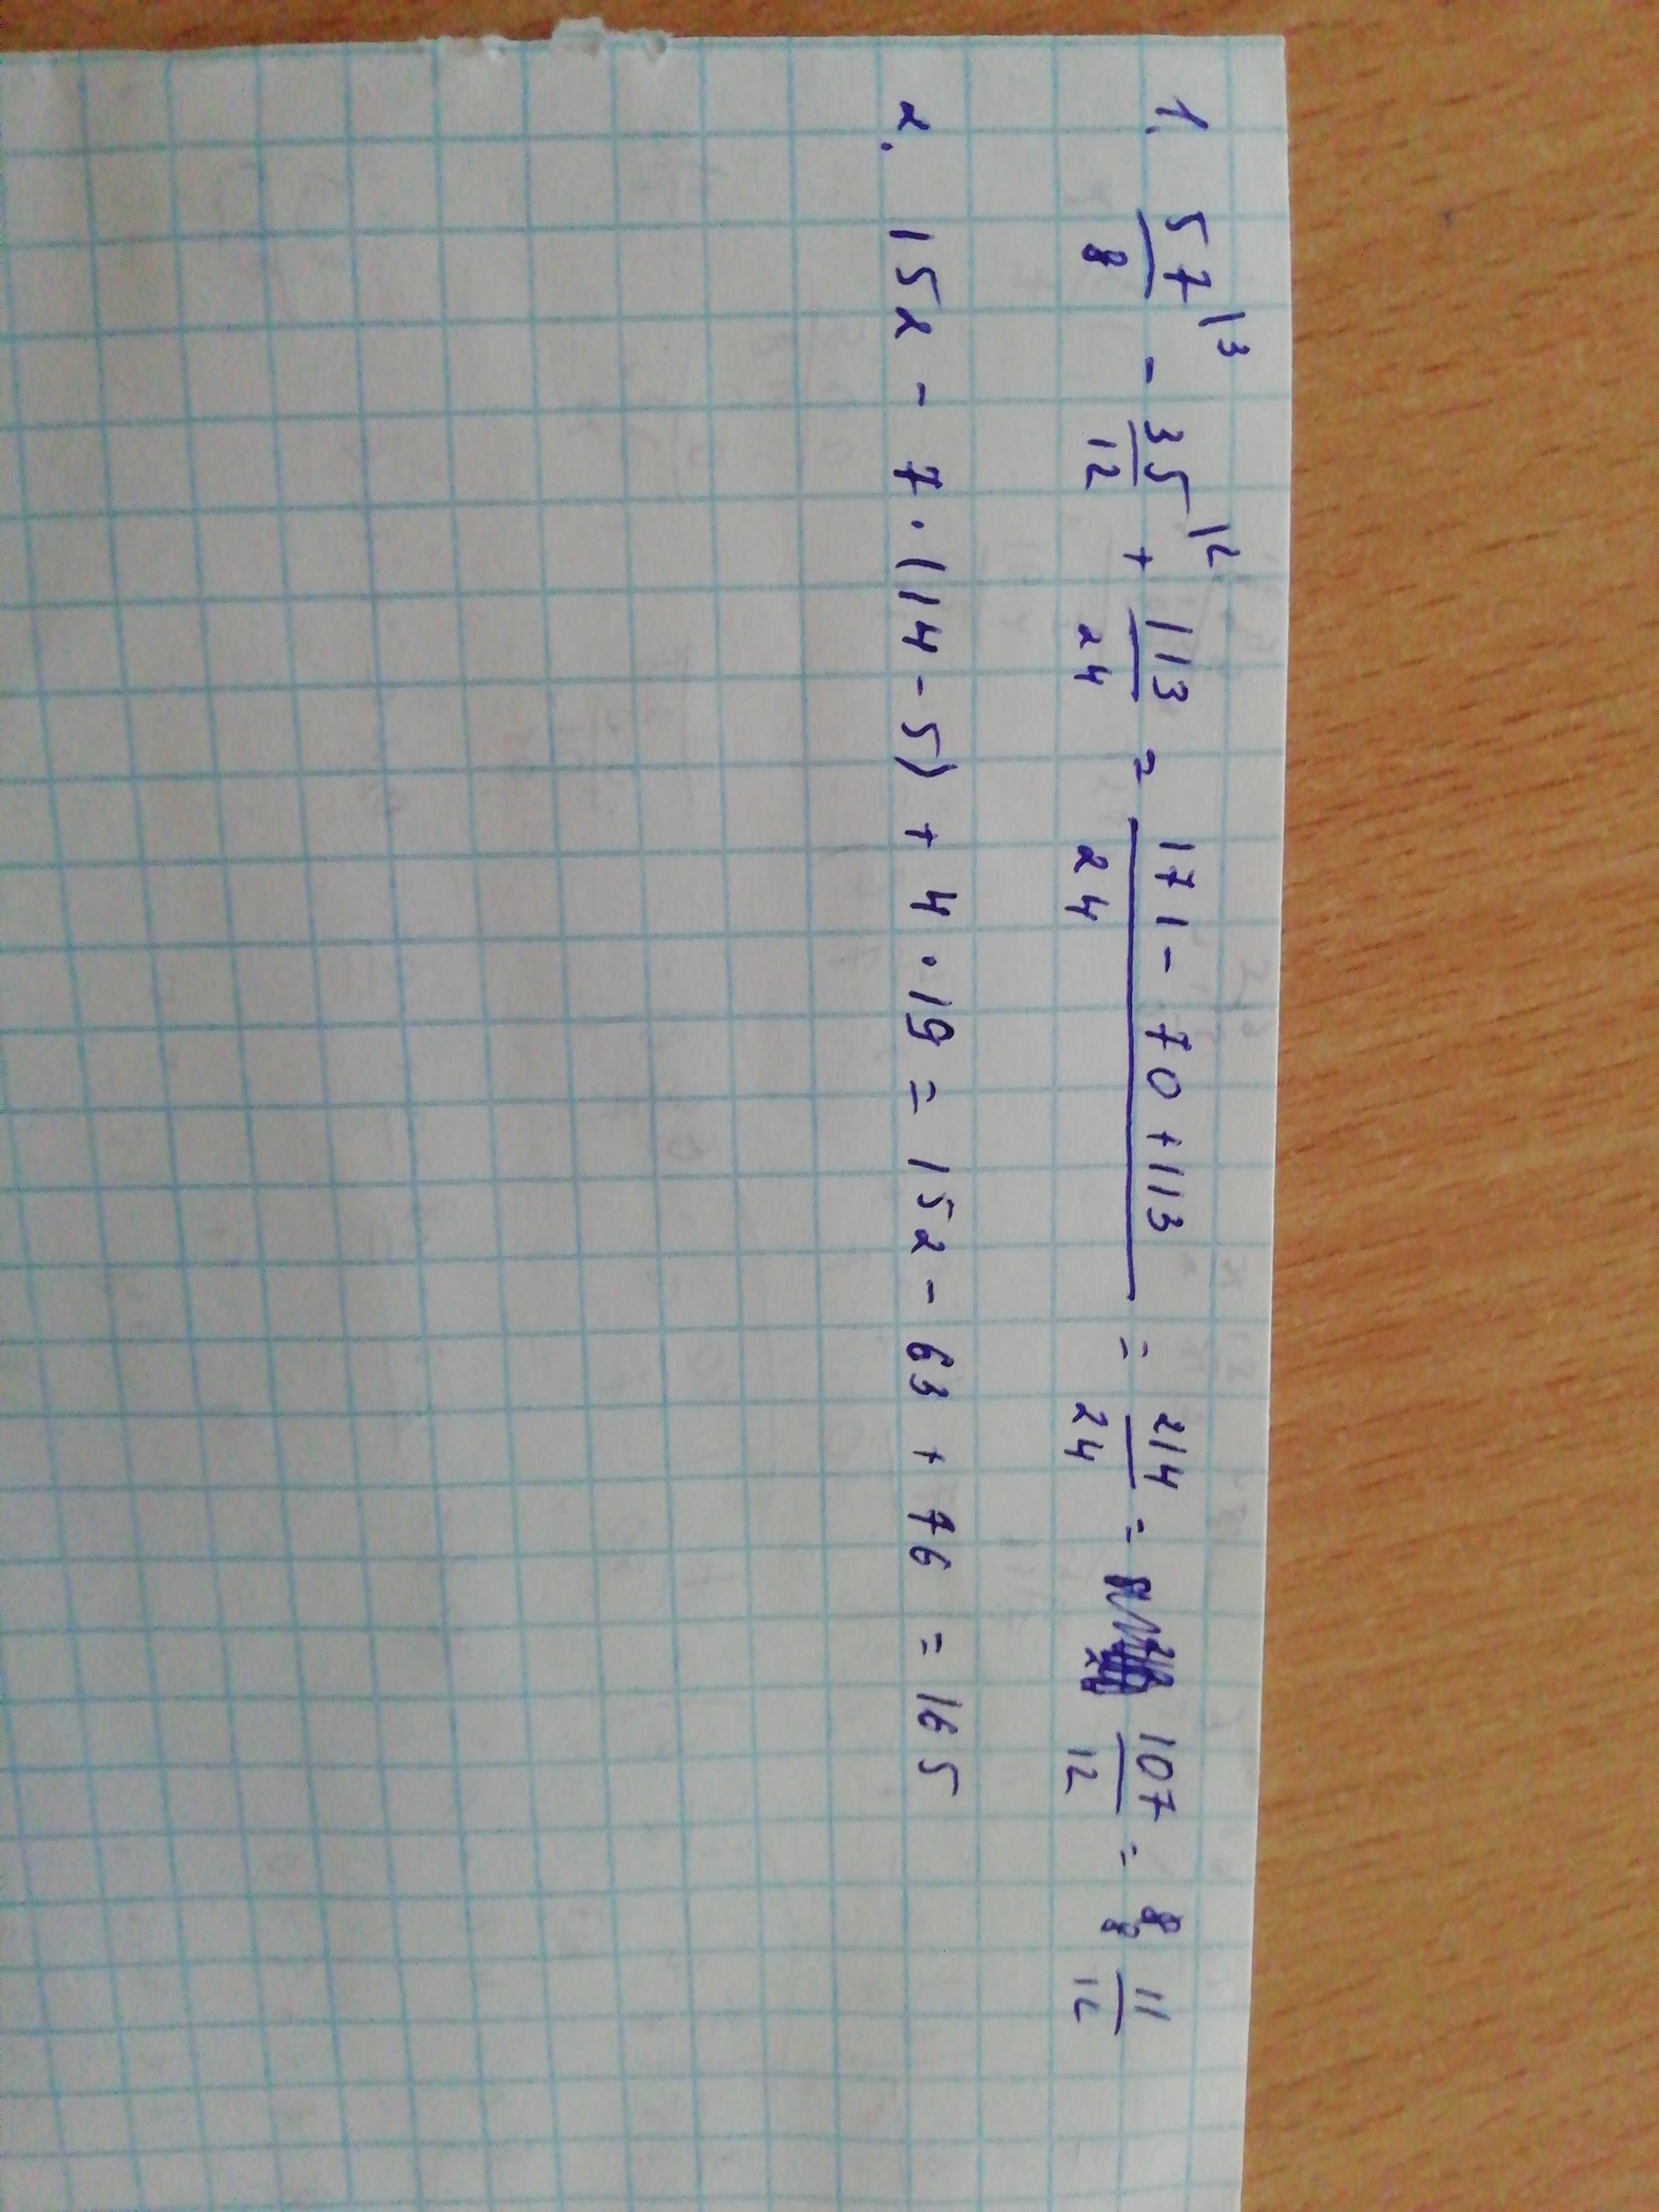 1. 57/8 |3 - 35/12 |2 + 113/24 = (171 - 70 + 113)/24 = 214/24 = 107/12 = 8 11/12
2. 152 - 7 · (14 - 5) + 4 · 19 = 152 - 63 + 76 = 165